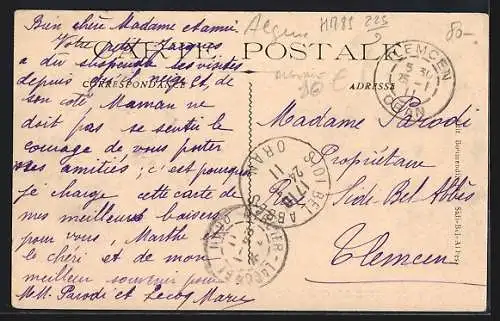 Bien chère Madame et amie.
Votre petit Jacques
a du suspendre les visites
depuis qu'il neige et, de
son côté, Maman ne
doit pas se sentir le
courage de vous porter
ses amitiés; c'est pourquoi
je charge cette carte de
mes meilleurs baisers
pour vous, Marthe
le chéri et de mon
meilleur souvenir pour
MM. Parodi et Lecoq Marie
CARTE POSTALE
CORRESPONDANCE
ADRESSE
Madame Parodi
Propriétaire
Rue Sidi Bel Abbès
Tlemcen
TLEMCEN
ORAN
SIDI BEL ABBÈS
ORAN
24
11
HM81 225
80-